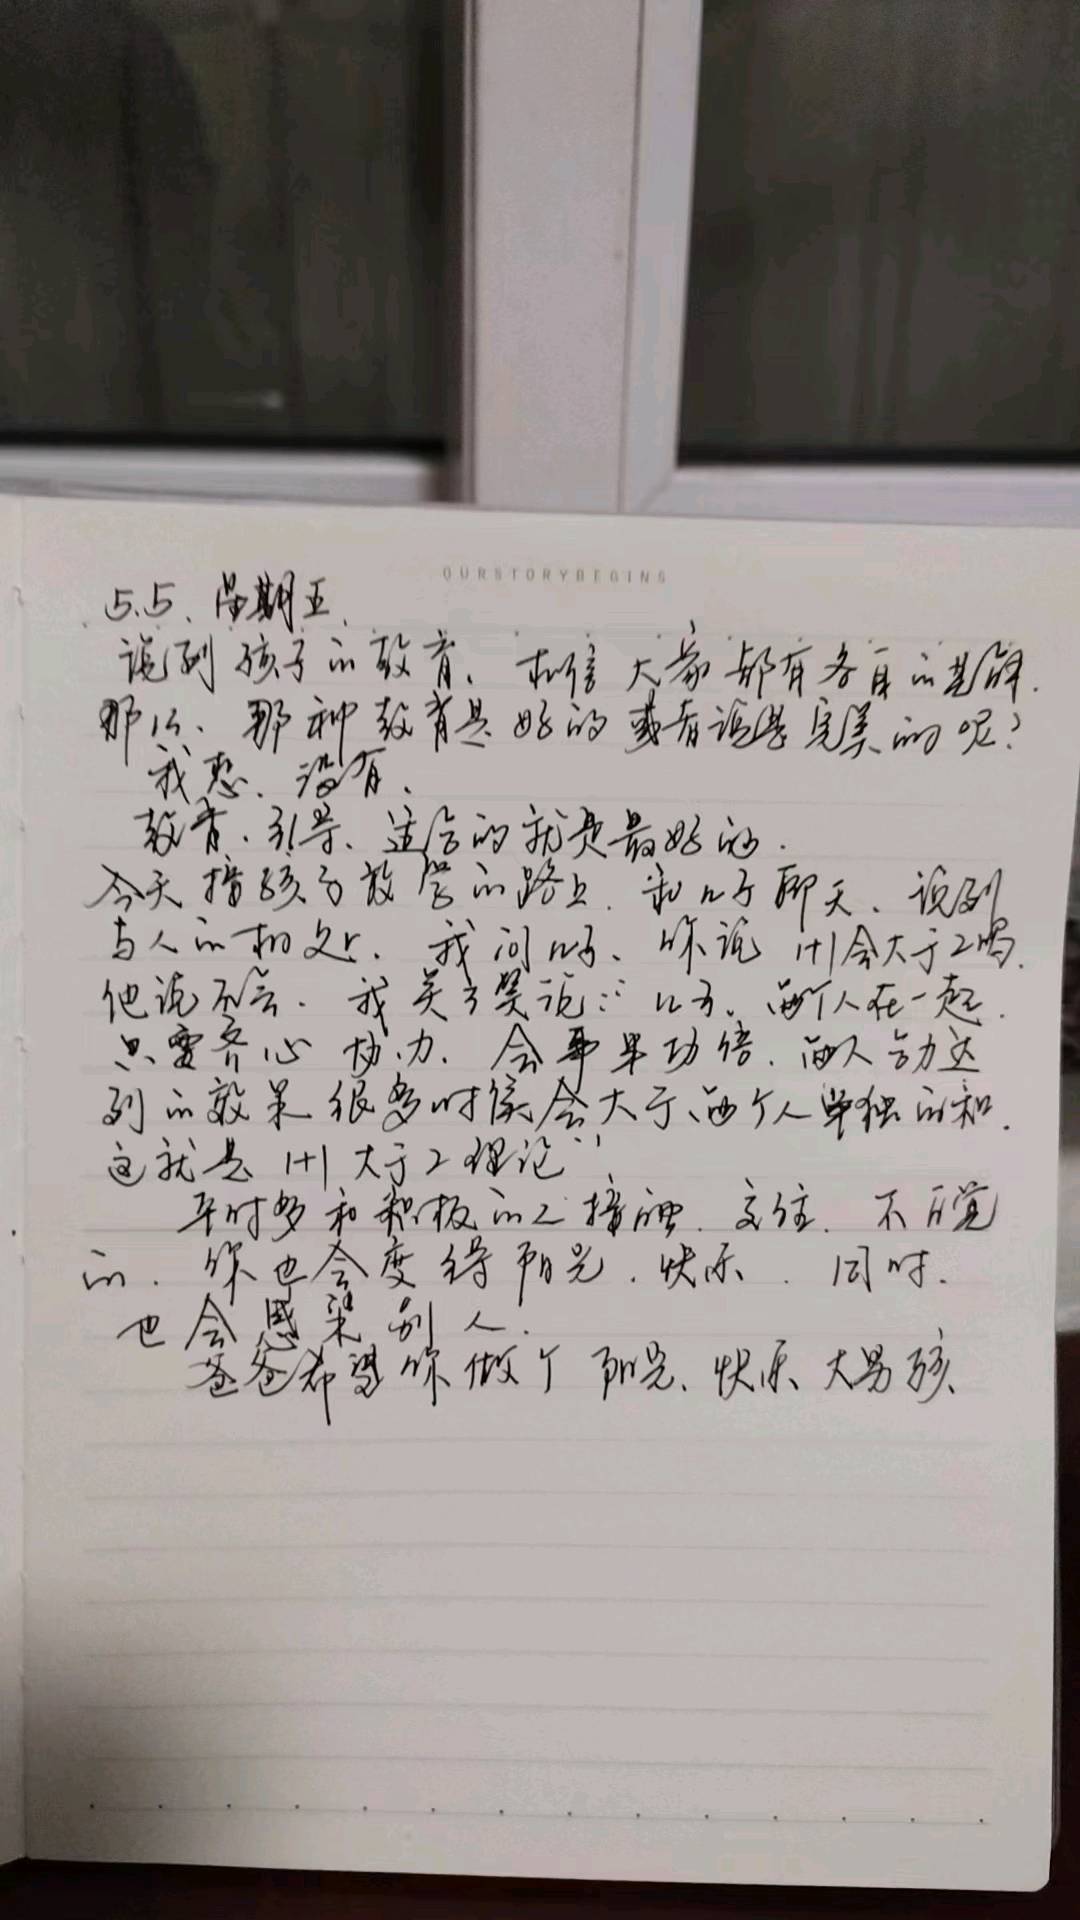 OURSTORYBEGINS
5.5. 星期五.
说到孩子的教育. 相信大家都有各自的见解.
那么. 那种教育是好的或者说是完美的呢?
我想. 没有.
教育、引导、适合的就是最好的.
今天接孩子放学的路上. 和儿子聊天、说到
与人的相处. 我问儿子、你说 1+1会大于2吗.
他说不会. 我笑了笑说: “儿子. 两个人在一起.
只要齐心协力. 会事半功倍. 两人合力达
到的效果很多时候会大于两个人单独的和.
这就是 1+1大于2理论”.
平时多和积极的人接触. 交往. 不自觉
的. 你也会变得阳光. 快乐. 同时.
也会感染别人.
爸爸希望你做个阳光、快乐大男孩